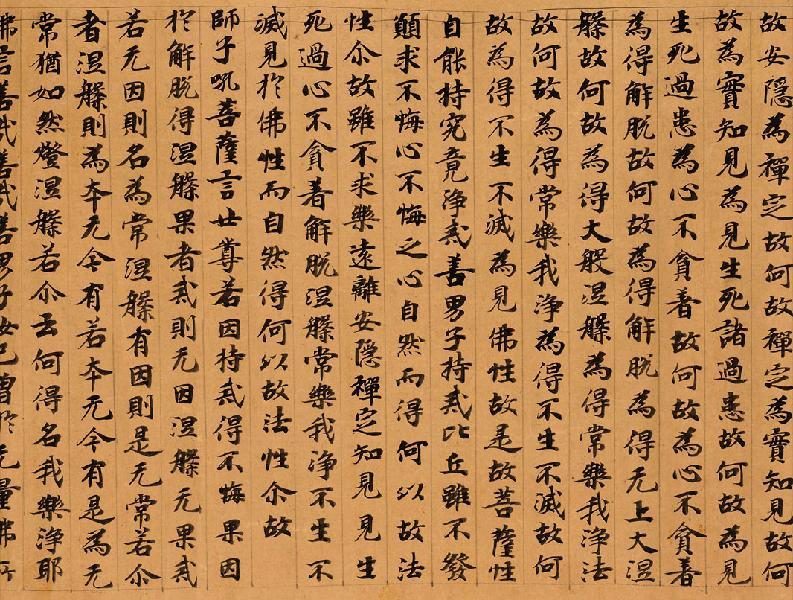 故安隱為禪定故何故禪定為實知見故何
故為實知見為見生死諸過患故何故為見
生死過患為心不貪著故何故為心不貪著
為得解脫故何故為得解脫為得无上大涅
槃故何故為得大般涅槃為得常樂我淨法
故何故為得常樂我淨為得不生不滅故何
故為得不生不滅為見佛性故是故菩薩性
自能持究竟淨戒善男子持戒比丘雖不發
願求不悔心不悔之心自然而得何以故法
性尒故雖不求樂遠離安隱禪定知見見生
死過心不貪著解脫涅槃常樂我淨不生不
滅見於佛性而自然得何以故法性尒故
師子吼菩薩言世尊若因持戒得不悔果因
於解脫得涅槃果者戒則无因涅槃无果戒
若无因則名為常涅槃有因則是无常若尒
者涅槃則為本无今有若本无今有是為无
常猶如然燈涅槃若尒云何得名我樂淨耶
佛言善哉善哉善男子汝已曽於无量佛所